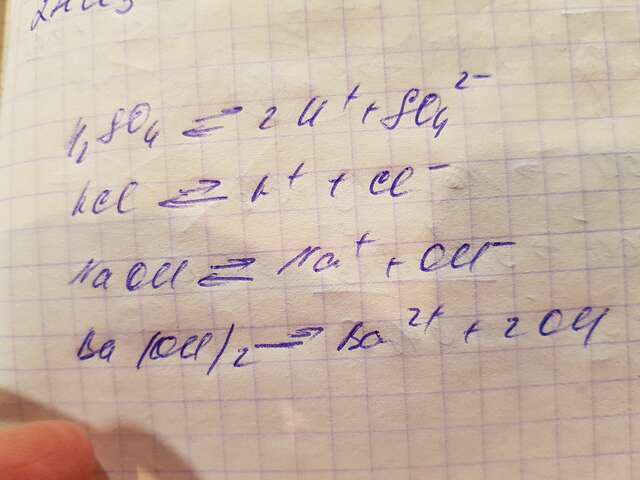 H₂SO₄ ⇄ 2H⁺ + SO₄²⁻
HCl ⇄ H⁺ + Cl⁻
NaOH ⇄ Na⁺ + OH⁻
Ba(OH)₂ → Ba²⁺ + 2OH